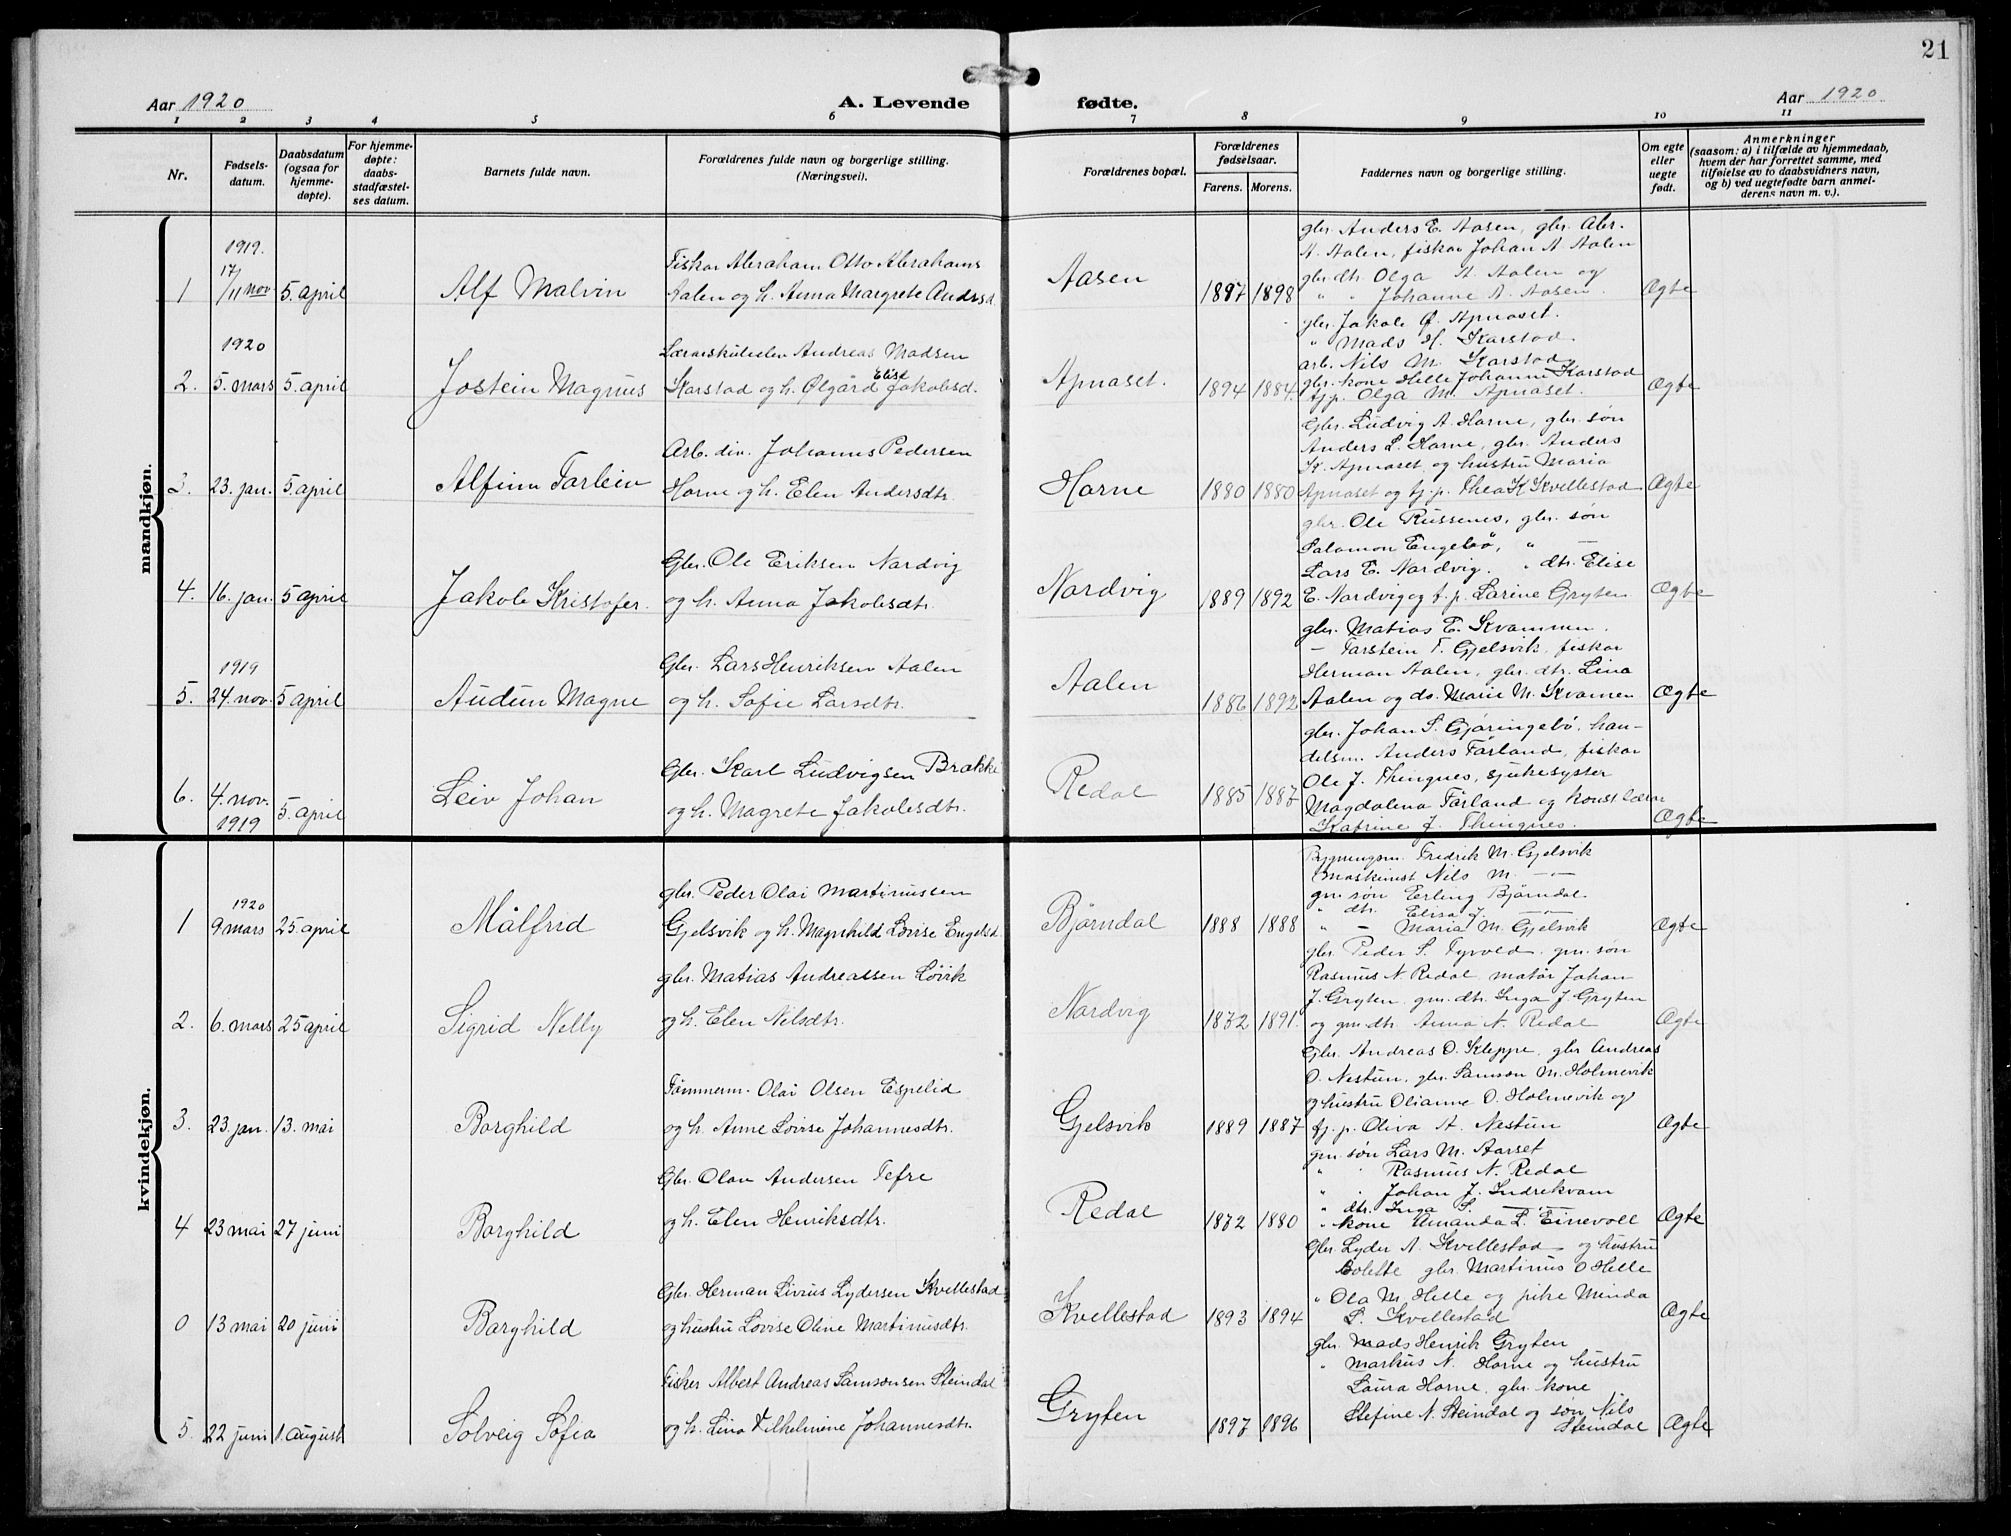 21
Aar 1920
A. Levende fødte.
Aar 1920
1 2 3 4 5 6 7 8 9 10 11
Nr.
Fødsels-
datum.
Daabsdatum
(ogsaa for
hjemme-
døpte).
For hjemme-
døpte:
daabs-
stadfæstel-
ses datum.
Barnets fulde navn.
Forældrenes fulde navn og borgerlige stilling.
(Næringsvei).
Forældrenes bopæl.
Forældrenes
fødselsaar.
Farens. Morens.
Faddernes navn og borgerlige stilling.
Om egte
eller
uegte
født.
Anmerkninger
(saasom: a) i tilfælde av hjemmedaab,
hvem der har forrettet samme, med
tilføielse av to daabsvidners navn,
og b) ved uegtefødte barn anmel-
derens navn m. v.).
mandkjøn.
1919.
17/11 nov
1
5. april
Alf Malvin
Fiskar Abraham Otto Abrahams
Aalen og h. Anna Margrete Andrsd.
Aasen
1897 1898
gbr. Anders E. Aasen, gbr. Abr.
A. Aalen, fiskar Johan A Aalen
gbr. dtr. Olga A. Aalen og
" " Johanne A. Aasen.
Ægte
1920
2. 5. mars 5. april
Jostein Magnus
Lærarskuleelev Andreas Madsen
Karstad og h. Ølgård Elise Jakobsd.
Apnaset.
1894 1884.
gbr. Jakob Ø. Apnaset.
" Mads H. Karstad
arb. Nils M. Karstad
gbr. kone Helle Johanne Karstad
tjp. Olga M. Apnaset.
Ægte
3. 23. jan. 5. april
Alfinn Torleiv
Arb. div. Johannes Pedersen
Horne og h. Elen Andersdtr.
Horne
1880 1880
Gbr. Ludvig A. Horne, gbr. søn
Anders L. Horne, gbr. Anders
K. Apnaset og hustru Maria
Apnaset og tj. p. Thea K Kvellestad
Ægte
4. 16. jan. 5 april
Jakob Kristofer.
Gbr. Ole Eriksen Nordvig
og h. Anna Jakobsdtr.
Nordvig
1889 1892
gbr. Ole Russenes, gbr. søn
Salomon Engebø, " —
Lars E. Nordvig. " dtr. Elise
E. Nordvig og t. p. Larine Gryten
Ægte
1919
5. 24. nov. 5 april
Audun Magne
Gbr. Lars Henriksen Aalen
og h. Sofie Larsdtr.
Aalen
1886 1892
gbr. Matias E. Kvammen.
— Torstein T. Gjelsvik, fiskar
Herman Aalen, gbr. dtr. Lina
Aalen og do. Marie M. Kvamen
Ægte
6. 4. nov. 1919 5. april
Leiv Johan
Gbr. Karl Ludvigsen Brakke
og h. Magrete Jakobsdtr.
Redal
1885 1887
gbr. Johan S. Gjøringebö, han-
delsm. Anders Førland, fiskar
Ole J. Thingnes, sjukesyster
Magdalena Førland og konst lærar
Katrine J. Thingnes.
Ægte
kvindekjøn.
1920
1 9 mars 25. april
Målfrid
gbr. Peder Olai Martinussen
Gjelsvik og h. Magnhild Lovise Engelsd
Björndal
1888 1888
Bygningsm. Fredrik M. Gjelsvik
Maskinist Nils M. —"—
gm. søn Erling Björndal
" dtr. Elisa J. —"—
" — Maria M. Gjelsvik
Ægte
2. 6. mars 25 april
Sigrid Nelly
gbr. Matias Andreassen Lövik
og h. Elen Nilsdtr.
Nordvig
1872 1891.
gbr. Peder S. Tyvold, gm. søn
Rasmus N. Redal, matør Johan
J. Gryten, gm. dtr. Inga J. Gryten
og gm. dtr. Anna N. Redal
Ægte
3. 23. jan. 13. mai
Borghild
Tömmerm. Olai Olsen Espelid
og h. Anne Lovise Johannesdtr.
Gjelsvik
1889 1887
Gbr. Andreas O. Kleppe, gbr Andreas
O. Nestun, gbr. Samson M. Holmevik
og hustru Olianne O. Holmevik og
tj. p. Oliva A. Nestun
Ægte
4 23 mai 27 juni
Borghild
Gbr. Olav Andersen Tefre
og h. Elen Henriksdtr.
Redal
1872 1880
gm. søn Lars M. Aarset
" " Rasmus N. Redal
" " Johan J. Indrekvam
" dtr. Inga S. —"—
" kone Amanda L. Einevoll
Ægte
0 13 mai 20 juni
Borghild
Gbr. Herman Livius Lydersen Kvellestad
og hustru Lovise Oline Martinusdtr.
Kvellestad
1893 1894
Gbr Lyder A. Kvellestad og hustru
Bolette gbr. Martinus O Helle
" Ola M. Helle og pike Minda
L. Kvellestad
Ægte
5 22 juni 1. august
Solveig Sofia
Fisker Albert Andreas Samsonsen Steindal
og h. Lina Vilhelmine Johannesdtr.
Gryten
1897 1896
gbr. Mads Henrik Gryten
" Markus N. Horne og hustru
Laura Horne, gbr. kone
Stefine N. Steindal og søn Nils
Steindal
Ægte